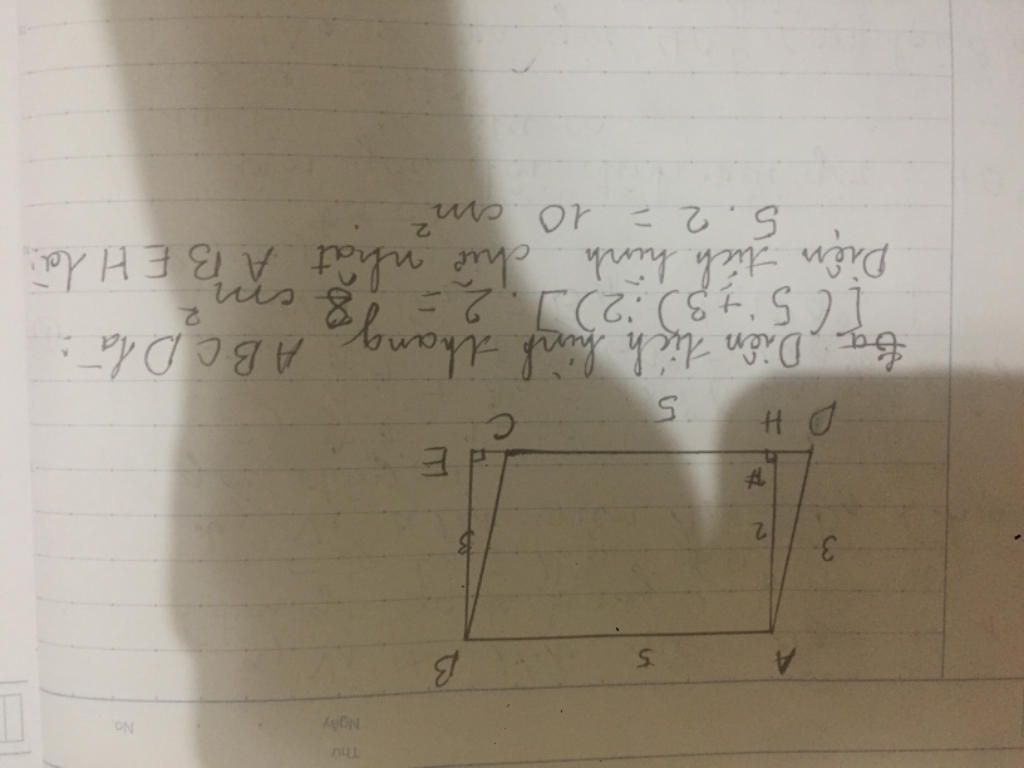 Thứ
Ngày No.
A 5 B
3 2 3
E
D H C
5
Diện tích hình thang ABCD là:
[(5+3):2)].2 = 8 cm²
Diện tích hình chữ nhật ABEH là:
5.2 = 10 cm²